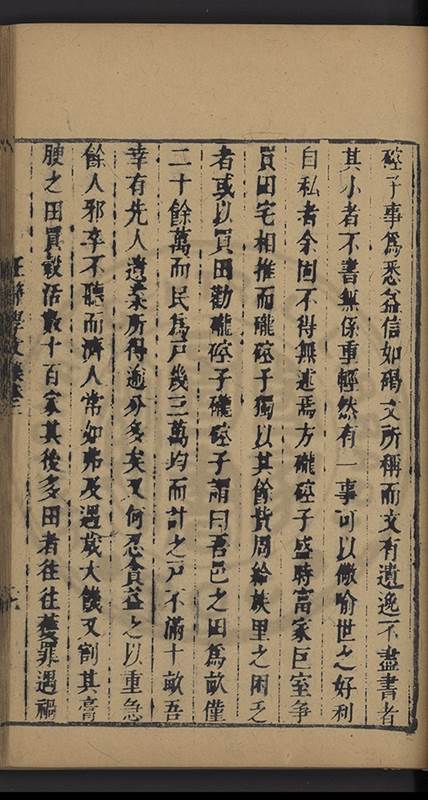 硿子事爲悉益信如碣文所稱而文有遺逸不盡書者
其小者不書無係重輕然有一事可以儆喻世之好利
自私者余固不得無述焉方礲硿子盛時富家巨室爭
買田宅相推而礲硿子獨以其餘貲周給族里之困乏
者或以買田勸礲硿子礲硿子謂曰吾邑之田爲畝僅
二十餘萬而民爲戶幾三萬均而計之戶不滿十畝吾
幸有先人遺業所得逾分多矣又何忍貪益之以重急
餘人邪卒不聽而濟人常如弗及遇歲大饑又割其膏
腴之田買穀活數十百家其後多田者往往蔓罪遇禍